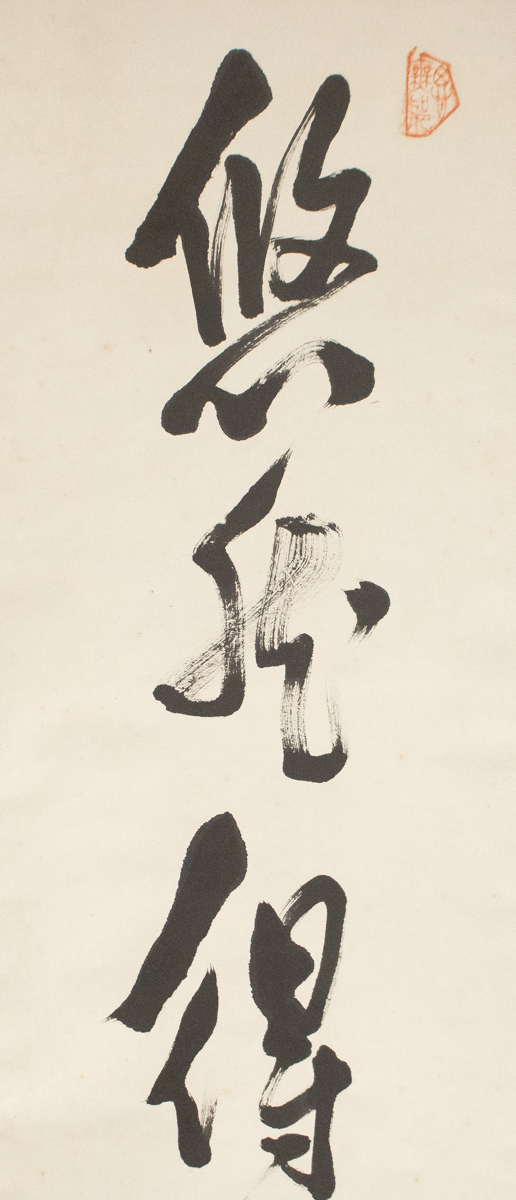 悠然得